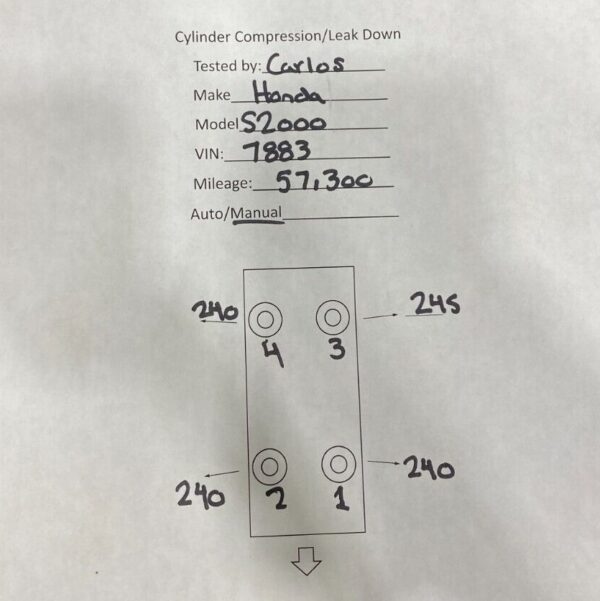 Cylinder Compression/Leak Down
Tested by: Carlos
Make Honda
Model S2000
VIN: 7883
Mileage: 57,300
Auto/Manual
240 245
4 3
240 240
2 1